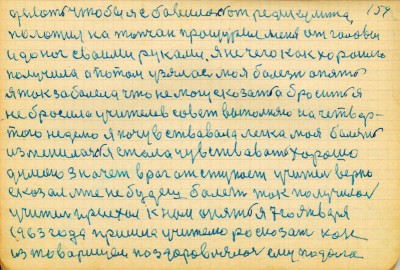 делоть чтобы я с бавилась от редикулита, 157
положил на топчан процурил меня от головы
и до ног сваими руками. Я нечего как хорошо
получила а потом узялась моя балезн опять
я так забалела что не могу сказать а бросить я
не бросила учителев совет выполняю на четвёр-
того недели я почувствавала легка моя балезнь
изменилась я стала чувствавать хорошо
думаю значет враг отступает учитель верно
сказал мне не будеш балеть так получилось
учитель приехал к нам опять я 7го января
1963 года пришла учителю росказать как
из товарищем поздоровнялся ему подала